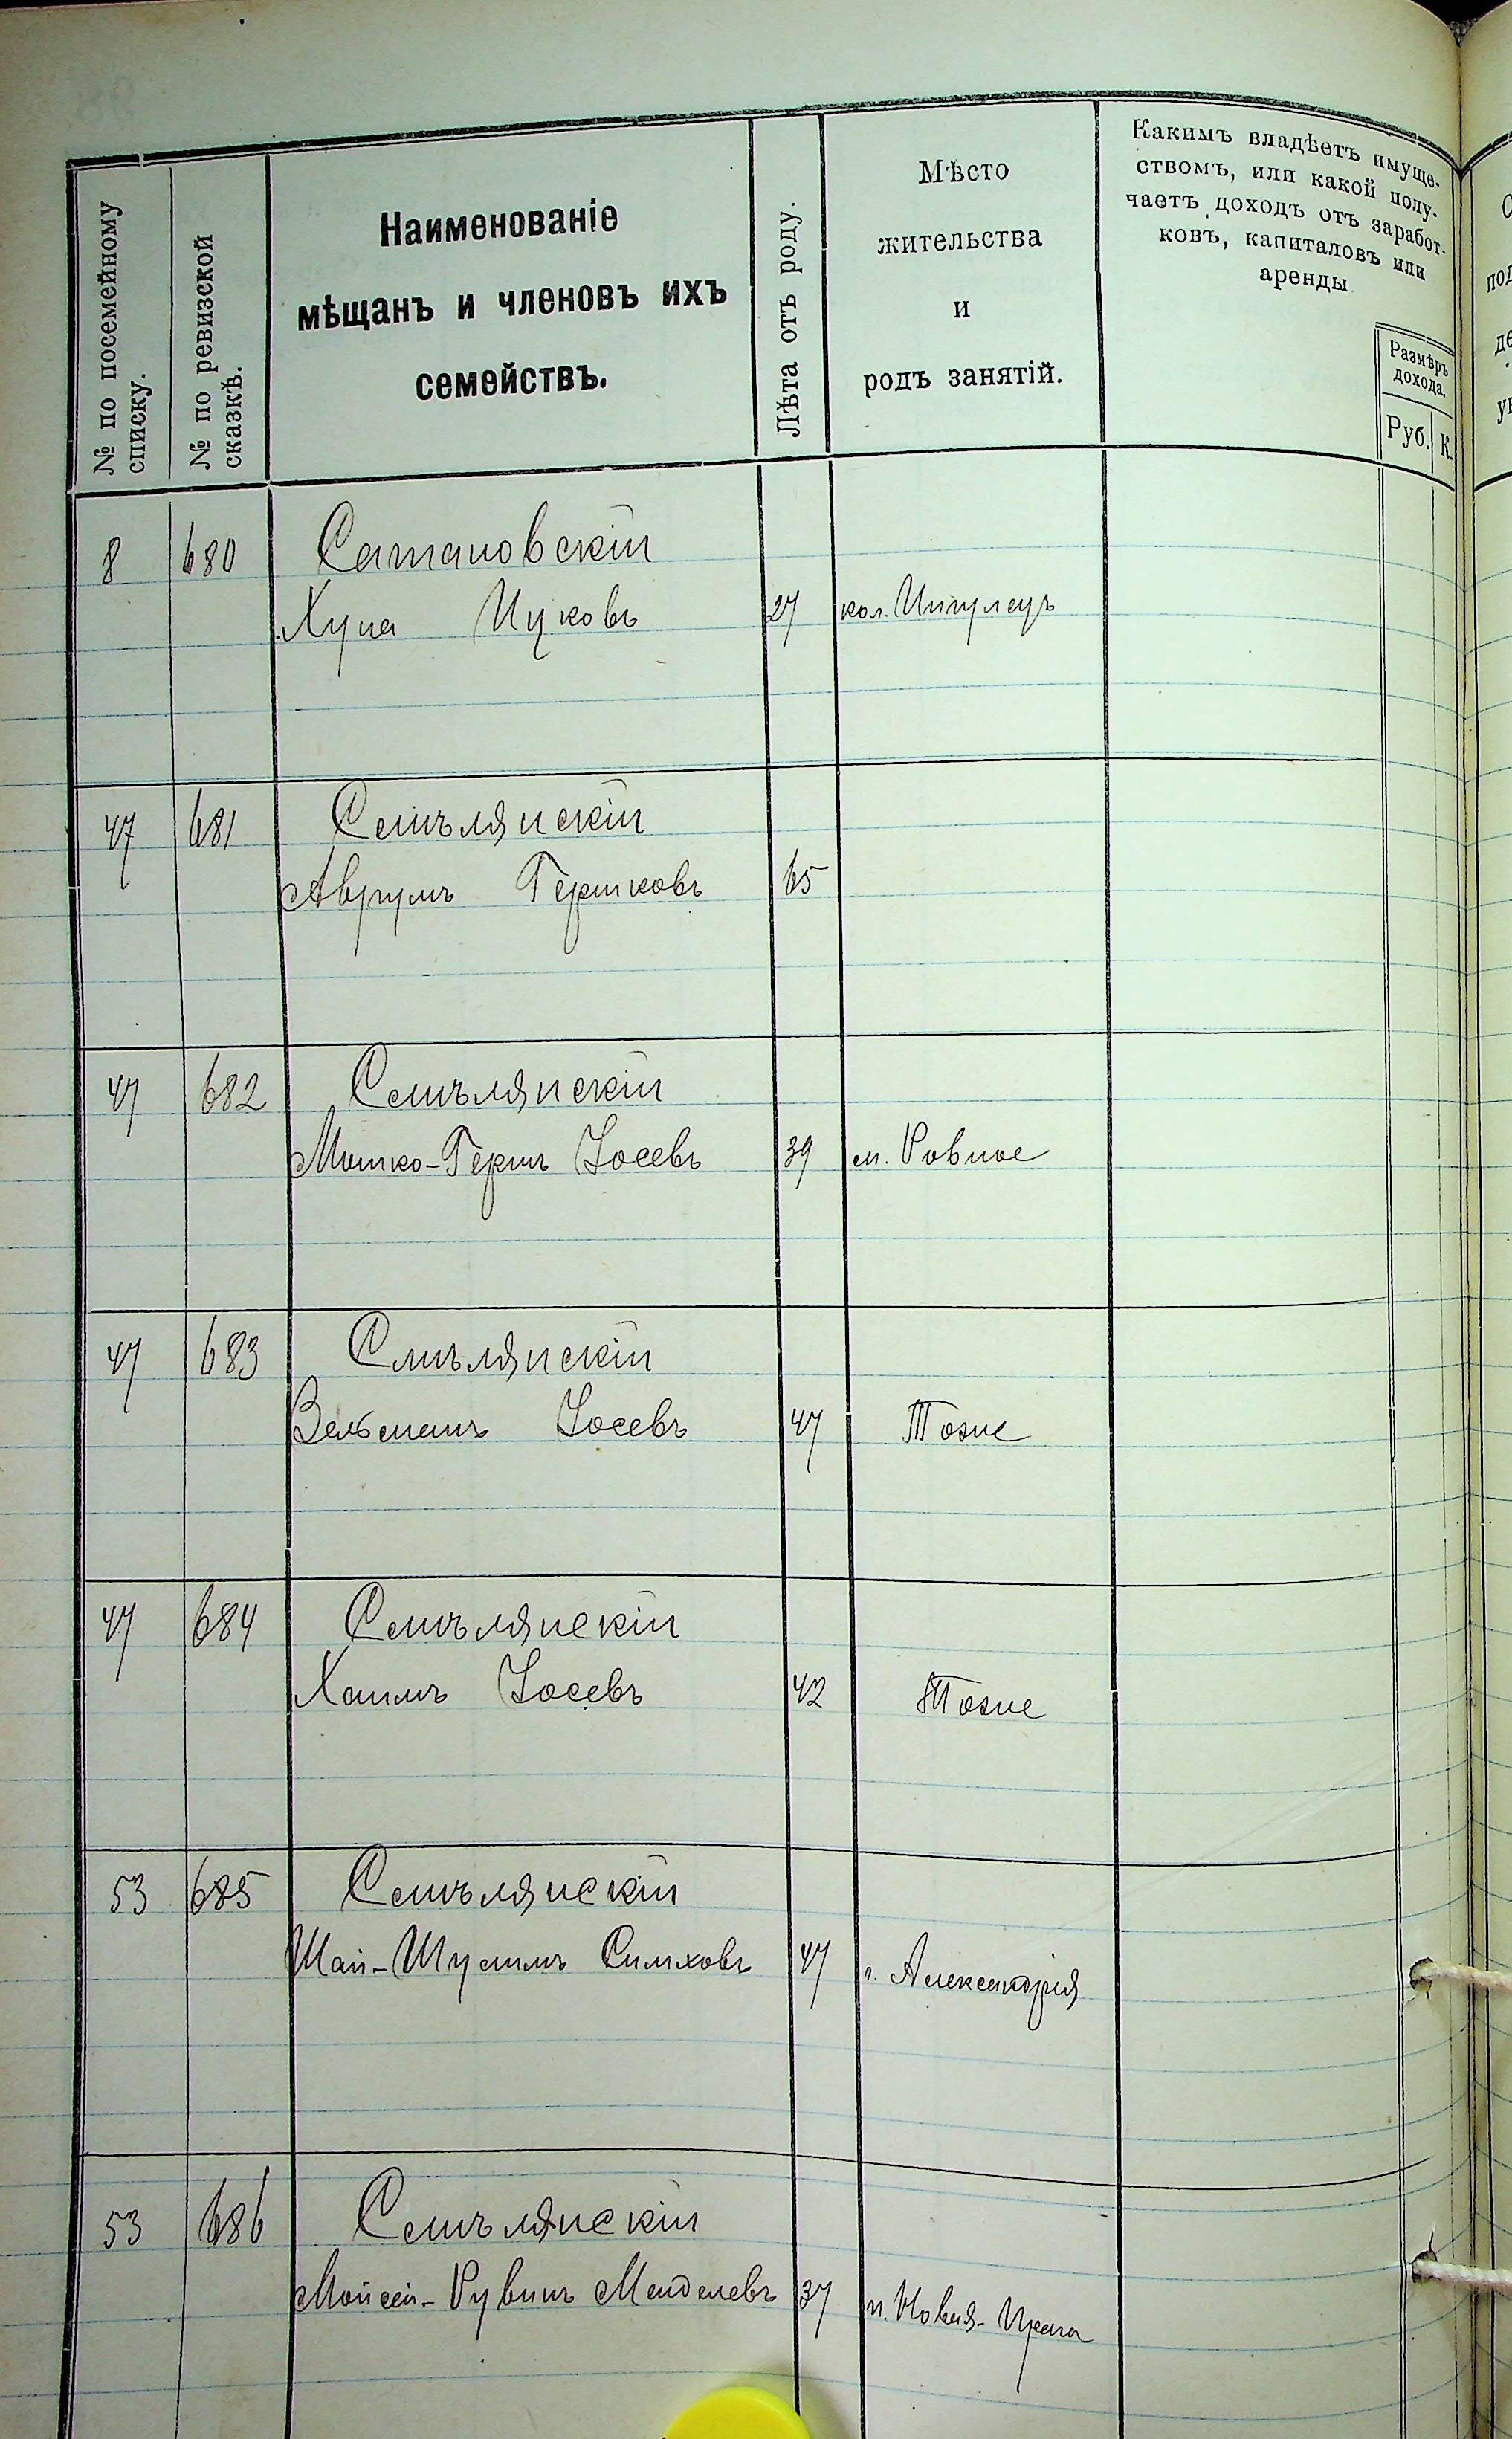 № по посемейному
списку.
№ по ревизской
сказкѣ.
Наименованіе
мѣщанъ и членовъ ихъ
семействъ.
Лѣта отъ роду.
Мѣсто
жительства
и
родъ занятій.
Какимъ владѣетъ имуще-
ствомъ, или какой полу-
чаетъ доходъ отъ заработ-
ковъ, капиталовъ или
аренды
Размѣръ
дохода.
Руб. К.
8 680 Сатановскій
Хуна Ицковъ 27 кол. Ингулецъ
47 681 Смѣлянскій
Аврумъ Гершковъ 65
47 682 Смѣлянскій
Мошко-Гершъ Іосевъ 39 м. Ровное
47 683 Смѣлянскій
Іосевъ 47 Тоже
47 684 Смѣлянскій
Хаимъ Іосевъ 42 Тоже
53 685 Смѣлянскій
Шай-Шулимъ Симховъ 47 г. Александрія
53 686 Смѣлянскій
Мойсей-Рувинъ Менделевъ 37 п. Новая-Прага